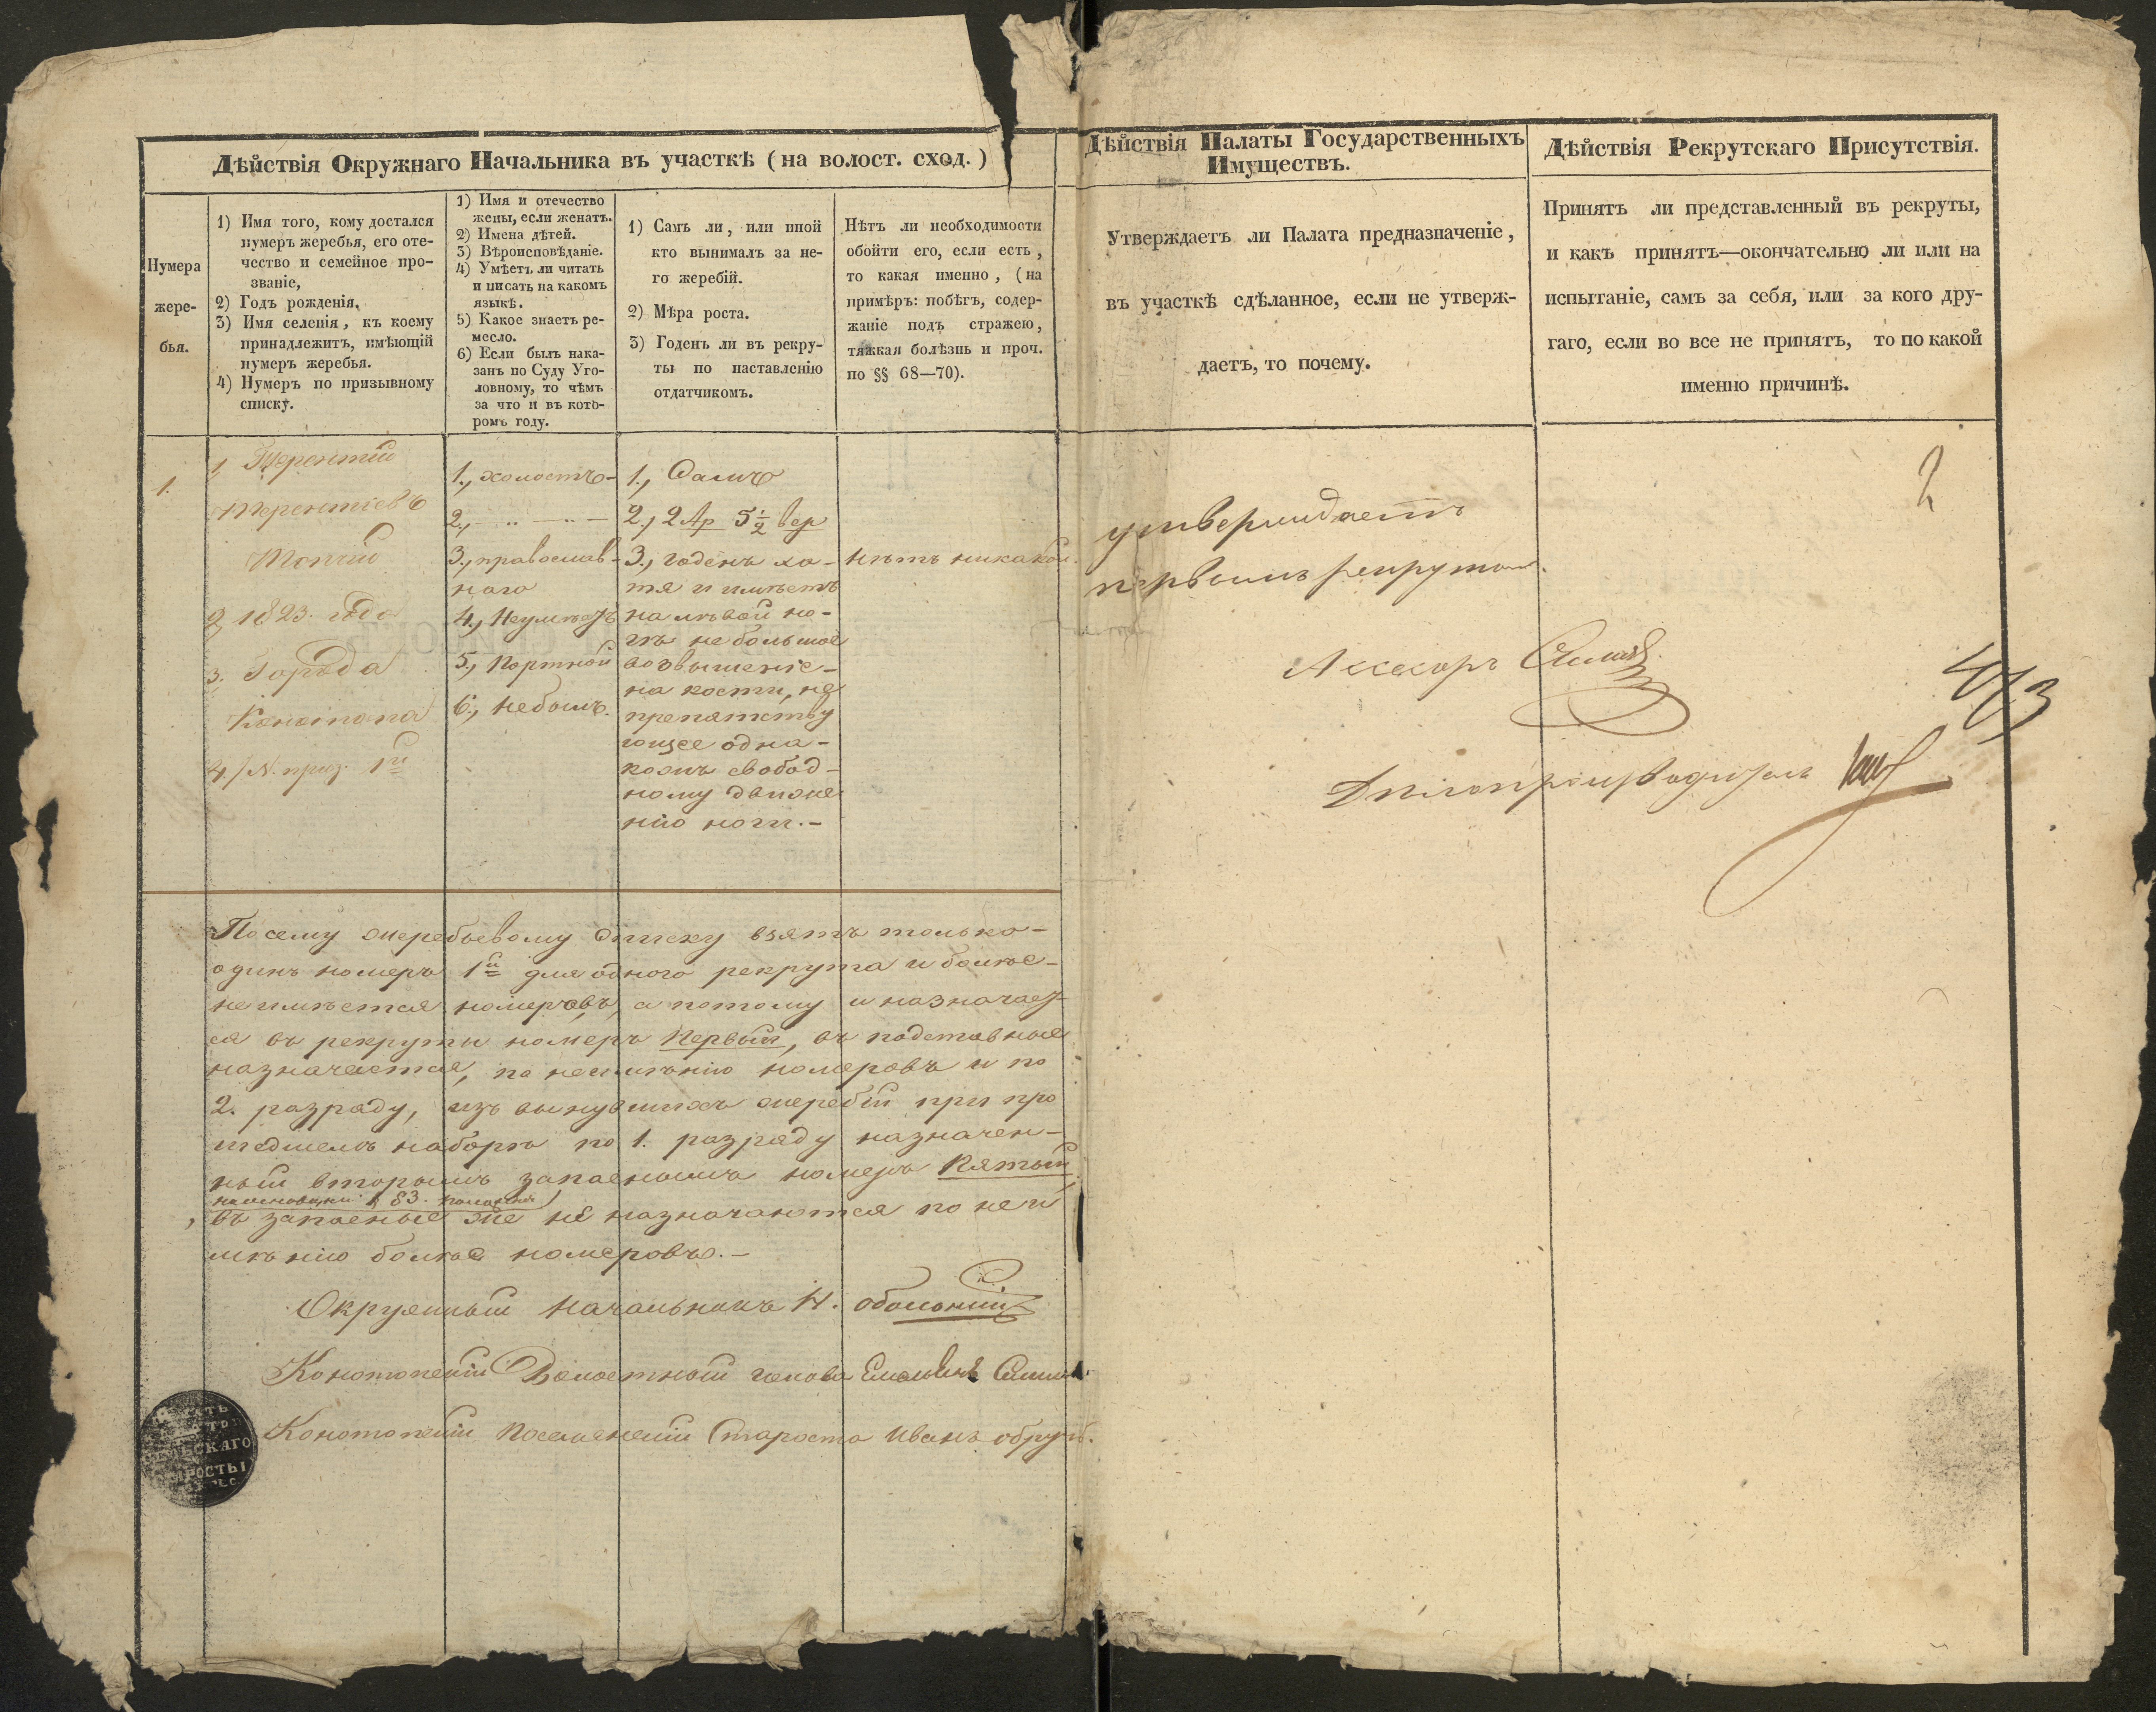 Дѣйствія Окружнаго Начальника въ участкѣ (на волост. сход.)
Нумера
жере-
бья.
1) Имя того, кому достался
нумеръ жеребья, его оте-
чество и семейное про-
званіе,
2) Годъ рожденія.
3) Имя селенія, къ коему
принадлежитъ, имѣющій
нумеръ жеребья.
4) Нумеръ по призывному
списку.
1) Имя и отечество
жены, если женатъ.
2) Имена дѣтей.
3) Вѣроисповѣданіе.
4) Умѣетъ ли читать
и писать на какомъ
языкѣ.
5) Какое знаетъ ре-
месло.
6) Если былъ нака-
занъ по Суду Уго-
ловному, то чѣмъ
за что и въ кото-
ромъ году.
1) Самъ ли, или иной
кто вынималъ за не-
го жеребій.
2) Мѣра роста.
3) Годенъ ли въ рекру-
ты по наставленію
отдатчикомъ.
Нѣтъ ли необходимости
обойти его, если есть,
то какая именно, (на
примѣръ: побѣгъ, содер-
жаніе подъ стражею,
тяжкая болѣзнь и проч.
по §§ 68—70).
1.
1, Терентій
Терентіевъ
2, 1823. года
3. Города
Конотопа
4,/N. приз. 1й
1., холостъ-
2., — .. — .. —
3., православ-
наго
4., Неумѣетъ
5., Портной
6., небылъ.
1., Самъ
2., 2 Ар 5 1/2 вер
3., годенъ хо-
тя и имѣетъ
на лѣвой но-
гѣ не большое
возвышеніе-
на кости, не
препятству
ющее одна-
кожъ свобод-
ному движе
нію ноги.-
Нѣтъ никакой.
Посему жеребьевому списку взятъ только-
одинъ номеръ 1й для одного рекрута и болѣе-
не имѣется номеровъ, а потому и назначает-
ся въ рекруты номеръ Первый, въ подставные
назначается, по неимѣнію номеровъ и по
2. разряду, изъ вынувшихъ жеребіи при про
шедшемъ наборѣ по 1. разряду назначен-
ный вторымъ запаснымъ номеръ Пятый,
на основаніи § 83. положенія
въ запасные же не назначаются по неи
мѣнію болѣе номеровъ.-
Окружный Начальникъ Н. Оболонскій
Конотопскій Волостный голова Емельянъ
Конотопскій Посе­лянскій Староста Иванъ
ПЕЧАТЬ
СЬСКАГО
РОСТЫ
Дѣйствія Палаты Государственныхъ
Имуществъ.
Утверждаетъ ли Палата предназначеніе,
въ участкѣ сдѣланное, если не утверж-
даетъ, то почему.
утверждаетъ
первымъ рекрутомъ.
Ассесоръ
Дѣлопроизводитель
Дѣйствія Рекрутскаго Присутствія.
Принятъ ли представленный въ рекруты,
и какъ принятъ—окончательно ли или на
испытаніе, самъ за себя, или за кого дру-
гаго, если во все не принятъ, то по какой
именно причинѣ.
2